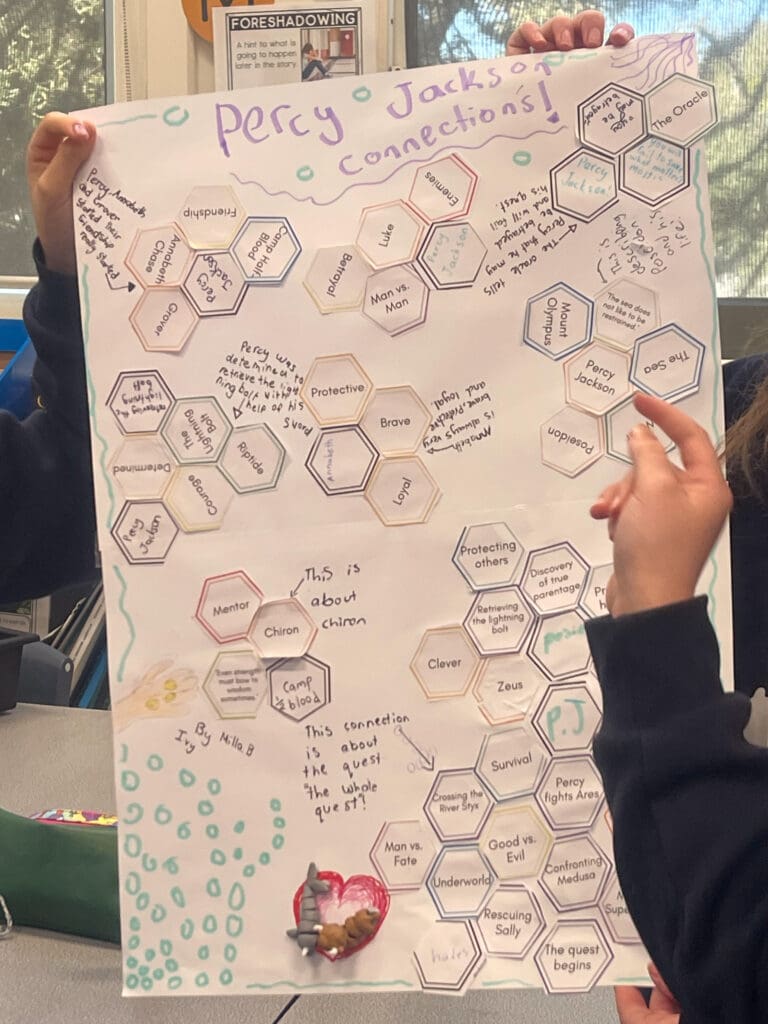 FORESHADOWING
A hint to what is
going to happen
later in the story
Percy Jackson
connections!
you
may be
betrayed
The Oracle
Percy
Jackson
you will
fail to save
what matters
most
The oracle tells
Percy that he may
be betrayed
and will fail
his quest.
Percy, Annabeth
and Grover
started their
friendship
really started
Friendship
Annabeth
Chase
Camp Half-
Blood
Percy
Jackson
Grover
Enemies
Luke
Percy
Jackson
Betrayal
Man vs.
Man
This is
describing
Poseidon
and his
life
Mount
Olympus
The sea does
not like to be
restrained.'
The Sea
Percy
Jackson
Poseidon
Percy was
determined to
retrieve the light
ning bolt with
help of his
Sword
retrieving the
lightning
bolt
The
Lightning
Bolt
Riptide
Determined
Courage
Percy
Jackson
Protective
Brave
Annabeth
Loyal
Annabeth
is always very
brave, protective
and loyal.
Mentor
Chiron
This is
about
chiron
"Even strength
must bow to
wisdom
sometimes."
Camp
1/2
blood
By Milla.B
Ivy
This connection
is about
the quest
"the whole
quest?
Protecting
others
Discovery
of true
parentage
Retrieving
the lightning
bolt
Clever
Zeus
P.J
Survival
Crossing the
River Styx
Percy
fights Ares
Man vs.
Fate
Good vs.
Evil
Underworld
Confronting
Medusa
Rescuing
Sally
hades
The quest
begins